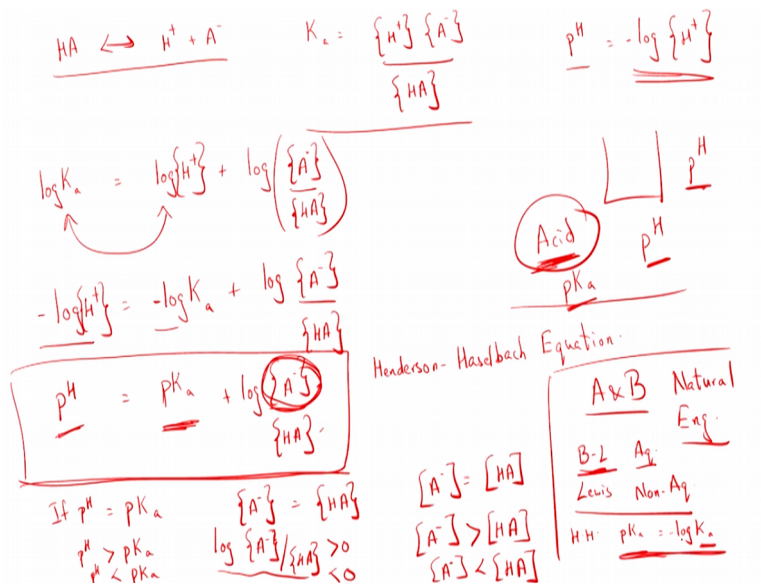 HA ↔ H⁺ + A⁻
Kₐ = {H⁺} {A⁻} / {HA}
pᴴ = -log {H⁺}
log Kₐ = log{H⁺} + log ({A⁻} / {HA})
pᴴ
Acid pᴴ
pKₐ
-log{H⁺} = -log Kₐ + log {A⁻} / {HA}
Henderson-Haselbach Equation.
pᴴ = pKₐ + log {A⁻} / {HA}.
A & B Natural
Eng.
B-L Aq.
Lewis Non-Aq
H·H· pKₐ = -log Kₐ
If pᴴ = pKₐ {A⁻} = {HA} [A⁻] = [HA]
pᴴ > pKₐ log {A⁻}/{HA} > 0 [A⁻] > [HA]
pᴴ < pKₐ < 0 {A⁻} < [HA]